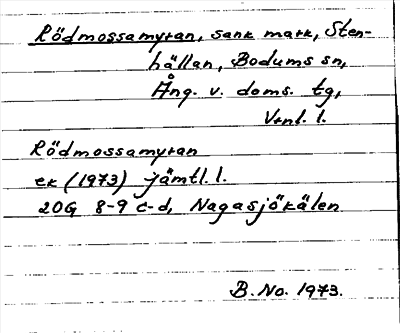 Rödmossamyran, sank mark, Sten-
hällan, Bodums sn,
Ång. v. doms. tg,
Vrnl. l.
Rödmossamyran
ek (1973) jämtl. l.
20G 8-9 c-d, Nagasjökälen
B. No. 1973.